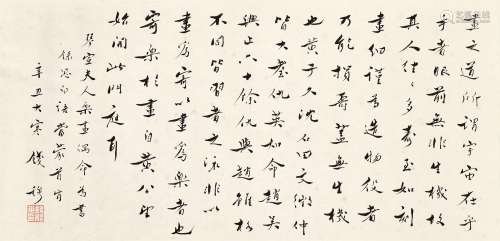 畫之道所謂宇宙在乎
手者眼前無非生機故
其人往往多壽至如刻
畫細謹為造物役者
乃能損壽蓋無生機
也黃子久沈石田文徵仲
皆大耋仇英知命趙吳
興止六十餘仇與趙雖格
不同皆習者之流非以
畫為寄以畫為樂者也
寄樂於畫自黃公望
始開此門庭耳
琴壹夫人樂畫遊命為書
辛丑大寒錢穆